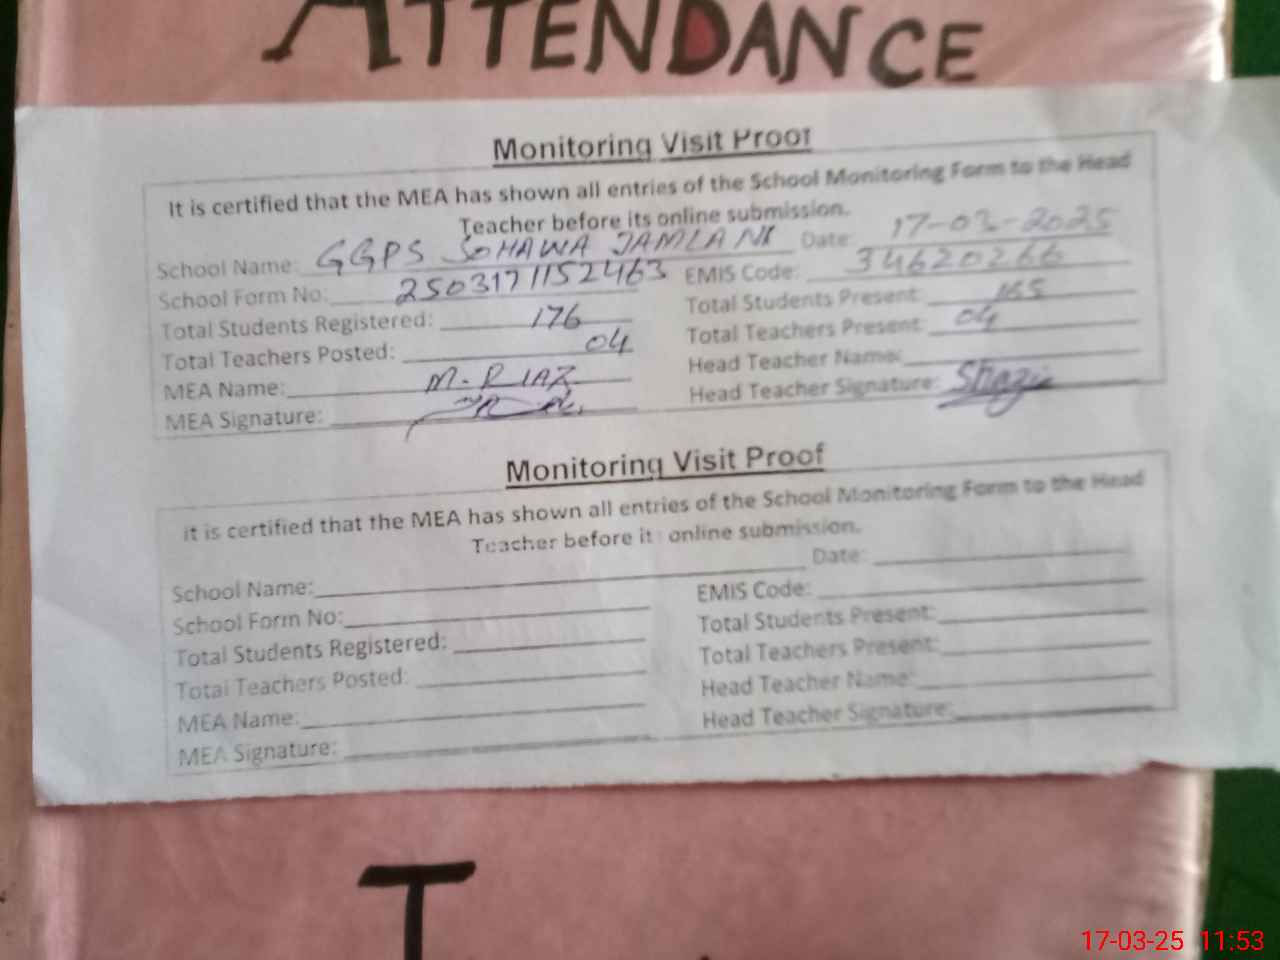 ATTENDANCE
Monitoring Visit Proof
It is certified that the MEA has shown all entries of the School Monitoring Form to the Head
Teacher before its online submission.
School Name: GGPS SOHAWA JAMLANI Date: 17-03-2025
School Form No: 2503171152463 EMIS Code: 34620266
Total Students Registered: 176 Total Students Present: 165
Total Teachers Posted: 04 Total Teachers Present: 04
MEA Name: M. RIAZ Head Teacher Name:
MEA Signature: Head Teacher Signature: Shazi
Monitoring Visit Proof
it is certified that the MEA has shown all entries of the School Monitoring Form to the Head
Teacher before its online submission.
School Name: Date:
School Form No: EMIS Code:
Total Students Registered: Total Students Present:
Total Teachers Posted: Total Teachers Present:
MEA Name: Head Teacher Name:
MEA Signature: Head Teacher Signature:
17-03-25 11:53